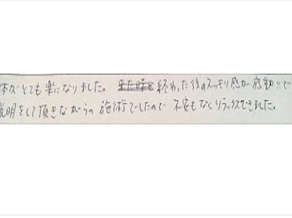 体がとても楽になりました。終わった後のスッキリ感が感動!!で
説明をして頂きながらの施術でしたので不安もなくリラックスできました。